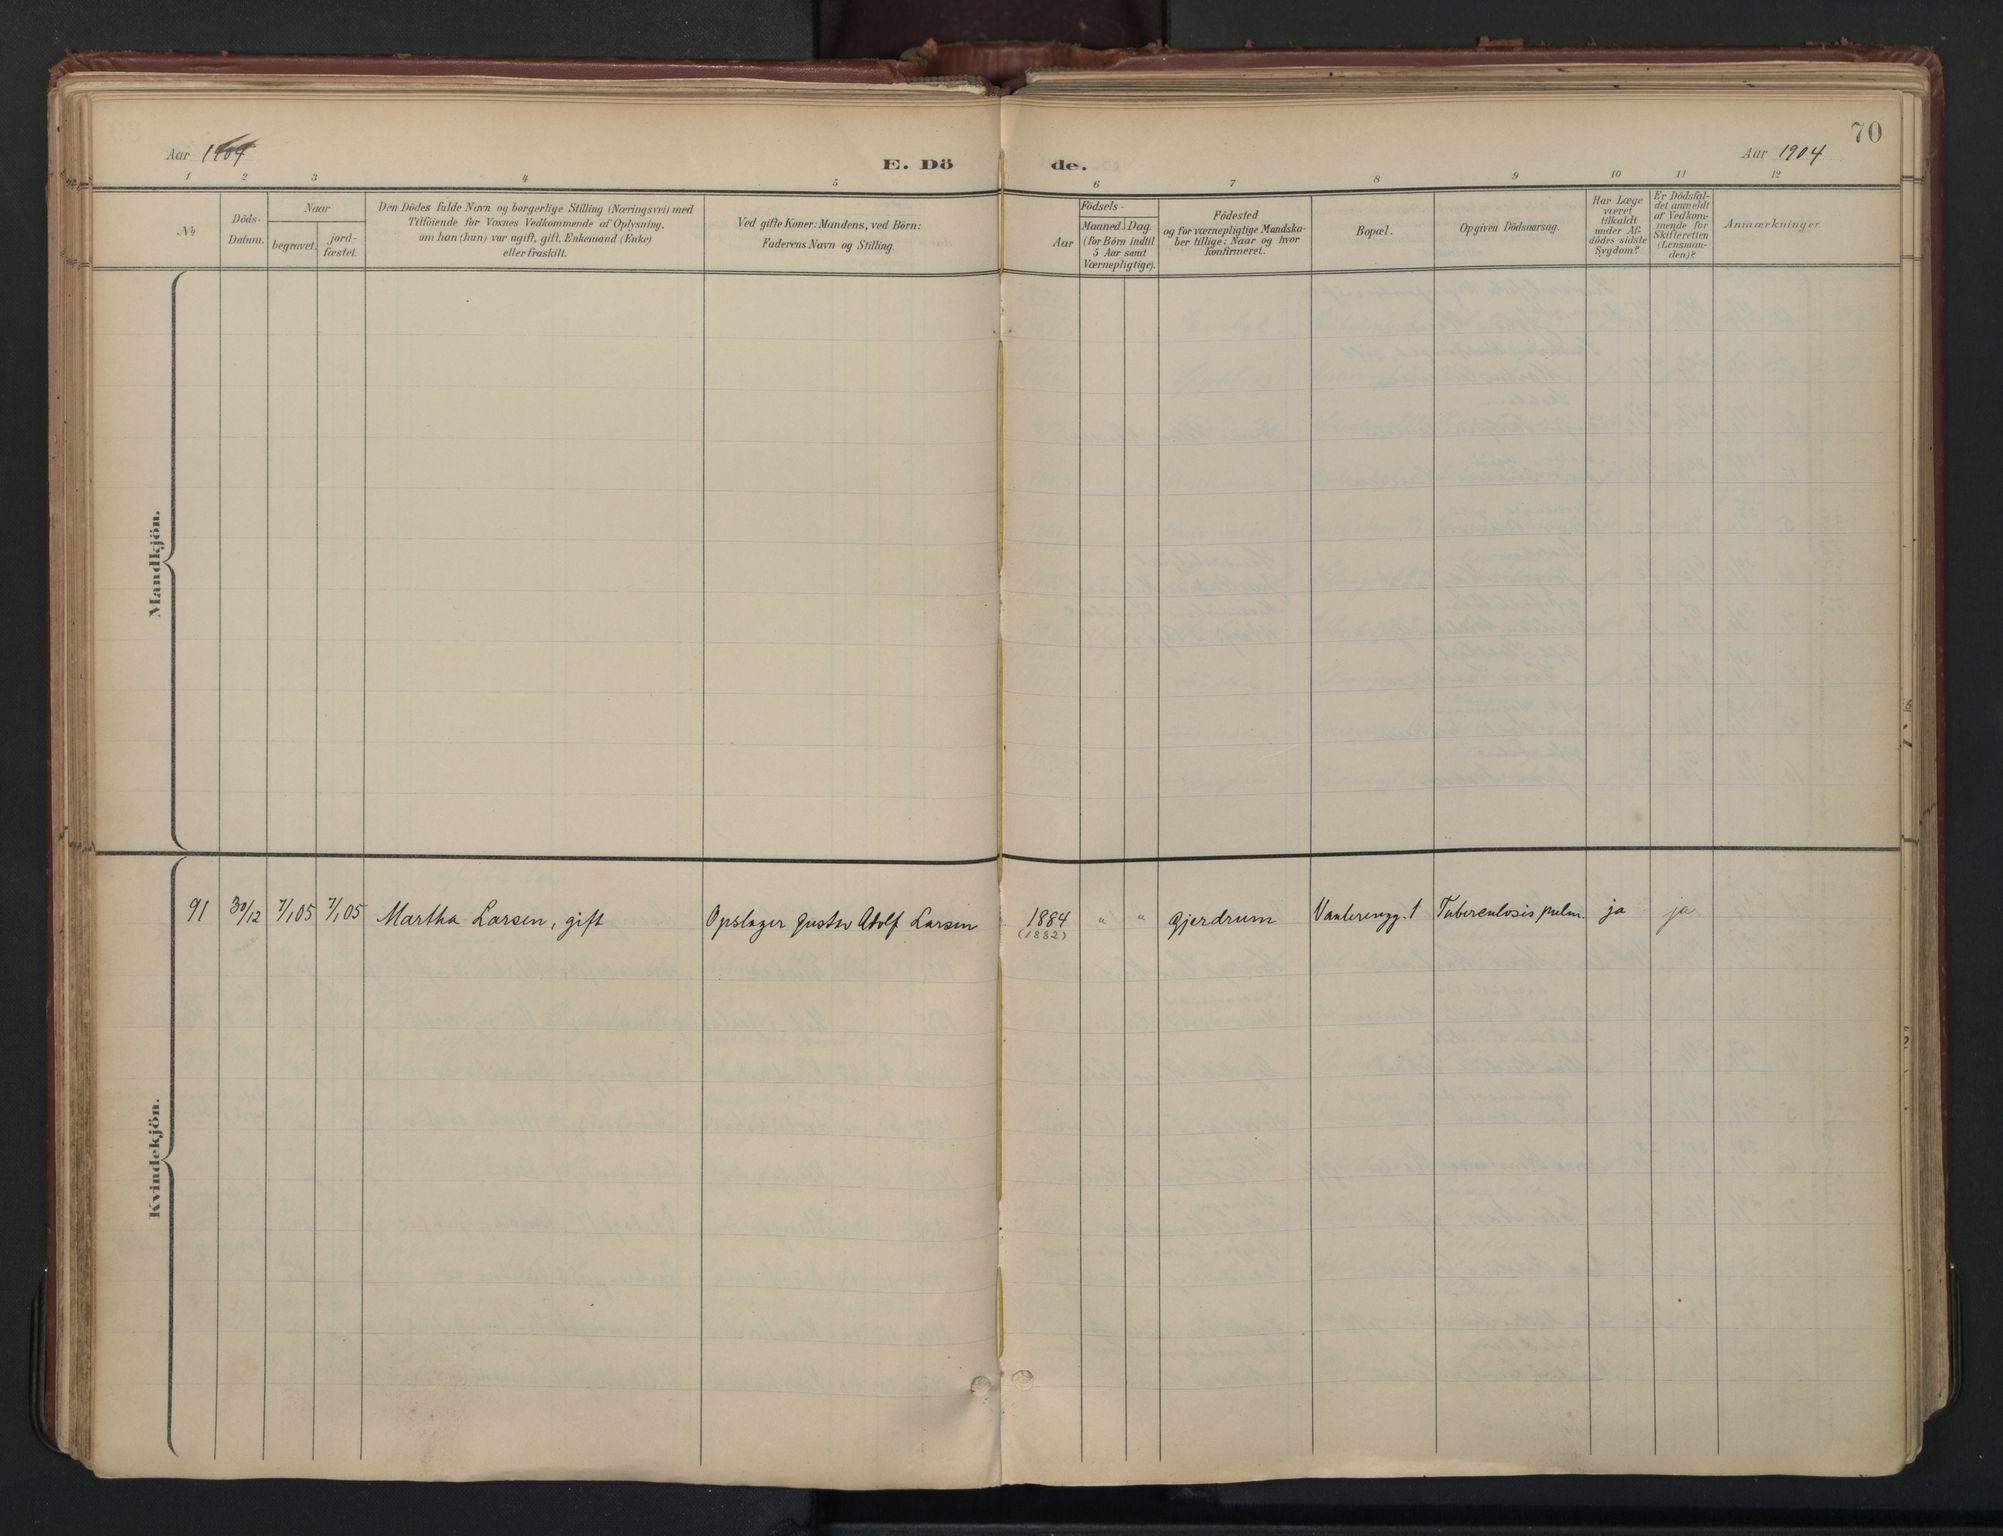 Aar 1904
E. Dö de.
Aar 1904
70
1 2 3 4 5 6 7 8 9 10 11 12
№
Döds-
Datum.
Naar
begravet.
jord-
fæstet.
Den Dödes fulde Navn og borgerlige Stilling (Næringsvei) med
Tilföiende for Voxnes Vedkommende af Oplysning,
om han (hun) var ugift, gift, Enkemand (Enke)
eller fraskilt.
Ved gifte Koner: Mandens, ved Börn:
Faderens Navn og Stilling.
Födsels-
Aar
Maaned. Dag.
(for Börn indtil
5 Aar samt
Værnepligtige).
Födested
og for værnepligtige Mandska-
ber tillige: Naar og hvor
konfirmeret.
Bopæl.
Opgiven Dödsaarsag.
Har Læge
været
tilkaldt
under Af-
dödes sidste
Sygdom?
Er Dödsfal-
det anmeldt
af Vedkom-
mende for
Skifteretten
(Lensman-
den)?
Anmærkninger.
Mandkjön.
Kvindekjön.
91 30/12 7/1 05 7/1 05 Martha Larsen, gift Opslager Gustav Adolf Larsen 1884 " " Gjerdrum Vaalerengg. 1 Tuberculosis pulm. ja ja
(1882)